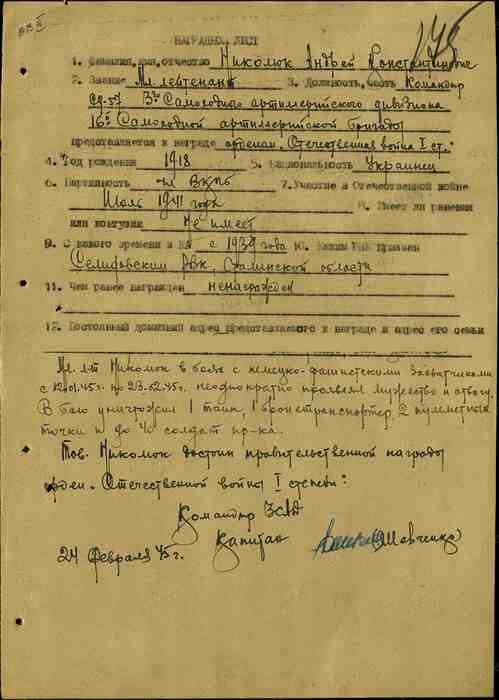 175
НАГРАДНОЙ ЛИСТ
1. Фамилия, имя, отчество Николюк Андрей Константинович
2. Звание Мл. лейтенант 3. Должность, часть Командир
СУ-57 3го Самоходного артиллерийского дивизиона
16й Самоходной артиллерийской бригады
представляется к награде орденом „Отечественная война I ст."
4. Год рождения 1918 5. Национальность Украинец
6. Партийность чл ВКПб 7. Участие в Отечественной войне
Июль 1941 года 8. Имеет ли ранения
или контузии Не имеет
9. С какого времени в КА с 1939 года 10. Каким РВК призван
Селидовским РВК, Сталинской области
11. Чем ранее награжден ненагражден
12. Постоянный домашний адрес представляемого к награде и адрес его семьи
Мл. л-т Николюк в боях с немецко-фашистскими захватчиками
с 12.01.45г. по 23.02.45г. неоднократно проявлял мужество и отвагу.
В бою уничтожил 1 танк, 1 бронетранспортер, 2 пулеметные
точки и до 40 солдат пр-ка.
Тов. Николюк достоин правительственной награды
орден „Отечественной войны I степени".
Командир 3САД
Капитан (Шевченко)
24 февраля 45г.